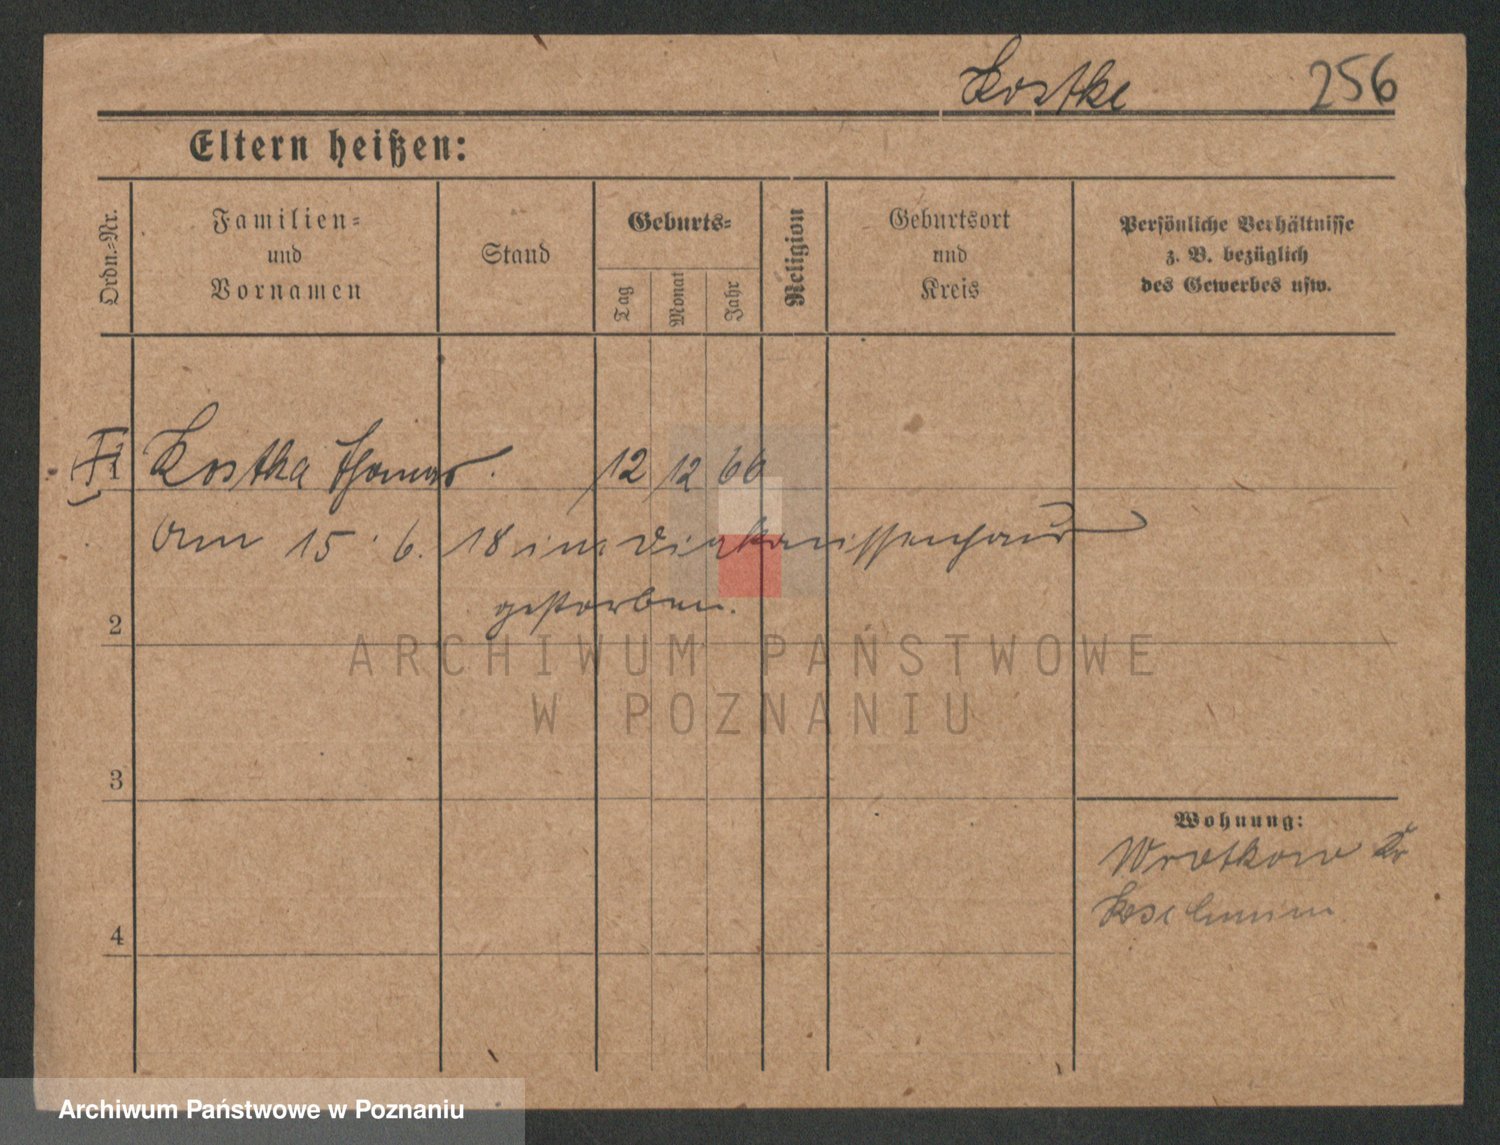 Kostke 256
Eltern heißen:
Ordn.=Nr.
Familien=
und
Vornamen
Stand
Geburts=
Tag
Monat
Jahr
Religion
Geburtsort
und
Kreis
Persönliche Verhältnisse
z. B. bezüglich
des Gewerbes usw.
1 Kostka Thomas. 12 12 66
am 15. 6. 18 im Diakonissenhaus
gestorben.
2
ARCHIWUM PAŃSTWOWE
W POZNANIU
3
Wohnung:
Wrotkow Kr
Koschmin
4
Archiwum Państwowe w Poznaniu